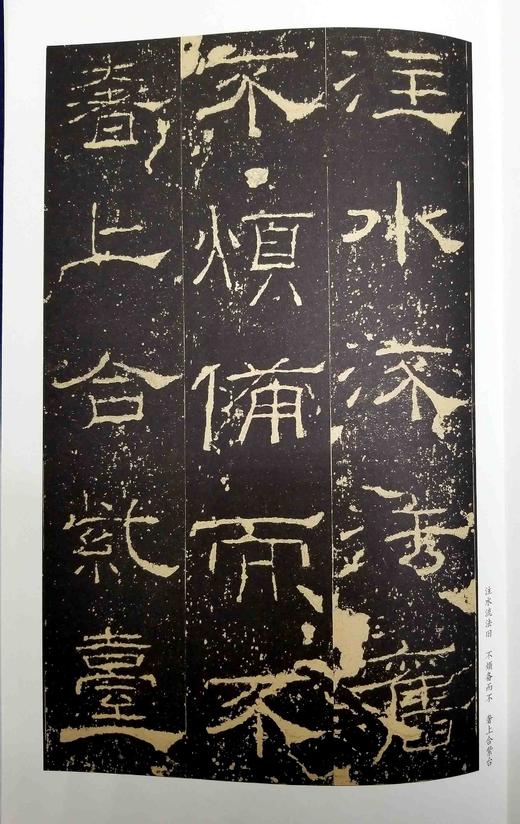 注水流法舊
不煩備而不
奢上合紫臺
注水流法旧　不烦备而不　奢上合紫台